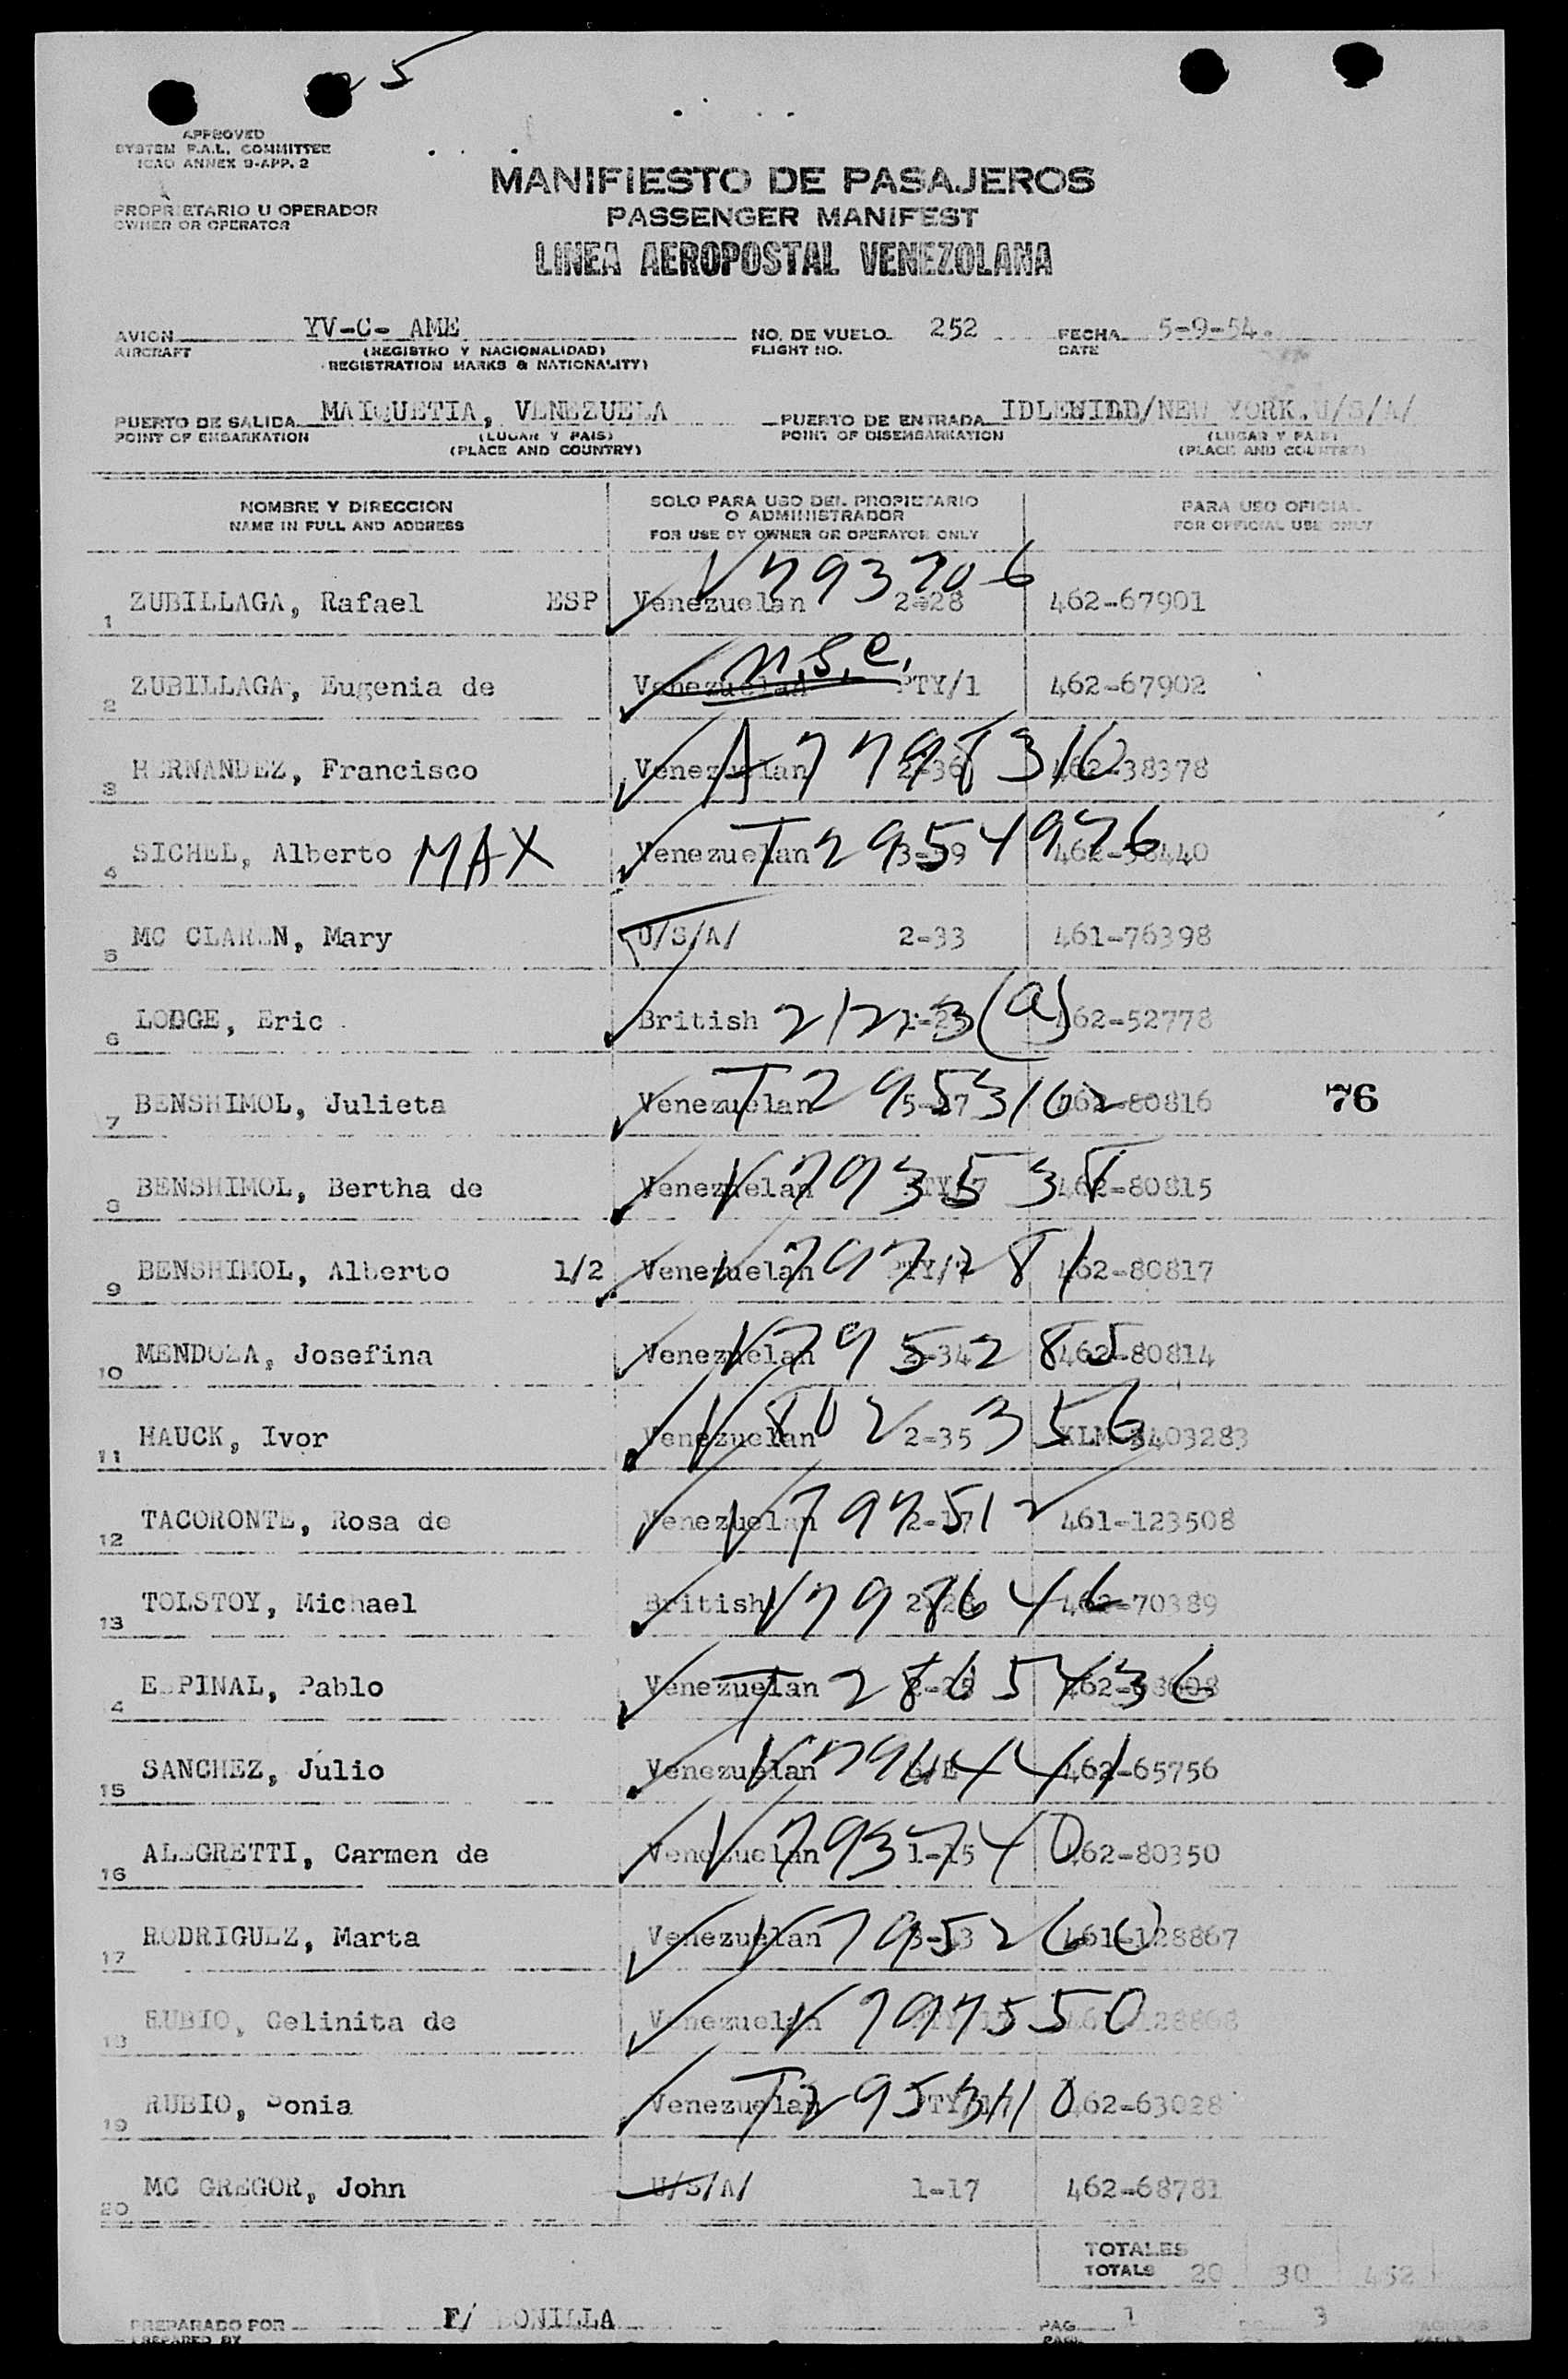 25
APPROVED
SYSTEM F.A.L. COMMITTEE
ICAO ANNEX 9-APP. 2
MANIFIESTO DE PASAJEROS
PROPRIETARIO U OPERADOR
OWNER OR OPERATOR
PASSENGER MANIFEST
LINEA AEROPOSTAL VENEZOLANA
AVION YV-C- AME NO. DE VUELO 252 FECHA 5-9-54.
AIRCRAFT (REGISTRO Y NACIONALIDAD) FLIGHT NO. DATE
REGISTRATION MARKS & NATIONALITY)
PUERTO DE SALIDA MAIQUETIA, VENEZUELA PUERTO DE ENTRADA IDLEWILD/NEW YORK.U/S/A/
POINT OF EMBARKATION (LUGAR Y PAIS) POINT OF DISEMBARKATION (LUGAR Y PAIS)
(PLACE AND COUNTRY) (PLACE AND COUNTRY)
NOMBRE Y DIRECCION SOLO PARA USO DEL PROPIETARIO PARA USO OFICIAL
NAME IN FULL AND ADDRESS O ADMINISTRADOR FOR OFFICIAL USE ONLY
FOR USE BY OWNER OR OPERATOR ONLY
V793706
1 ZUBILLAGA, Rafael ESP Venezuelan 2-28 462-67901
n.s.e.
2 ZUBILLAGA, Eugenia de Venezuelan PTY/1 462-67902
A7798316
3 HERNANDEZ, Francisco Venezuelan 2-36 462-38378
4 SICHEL, Alberto MAX Venezuelan T2954976
5 MC CLAREN, Mary U/S/A/ 2-33 461-76398
6 LODGE, Eric British 462-52778
7 BENSHIMOL, Julieta Venezuelan T2953162 462-80816 76
8 BENSHIMOL, Bertha de Venezuelan V793538 462-80815
9 BENSHIMOL, Alberto 1/2 Venezuelan V797281 462-80817
10 MENDOZA, Josefina Venezuelan V795285 2-34 462-80814
11 HAUCK, Ivor Venezuelan V802356 2-35 KLM
12 TACORONTE, Rosa de Venezuelan V797512 2-17 461-123508
13 TOLSTOY, Michael British V798646 462-70389
4 ESPINAL, Pablo Venezuelan T2865436
15 SANCHEZ, Julio Venezuelan V796441 462-65756
16 ALEGRETTI, Carmen de Venezuelan V793740 1-15 462-80350
17 RODRIGUEZ, Marta Venezuelan V795260 461-128867
18 RUBIO, Celinita de Venezuelan V797550
19 RUBIO, Sonia Venezuelan T2953110 PTY/17 462-63028
20 MC GREGOR, John U/S/A/ 1-17 462-68781
TOTALES
TOTALS 20 30 452
PREPARADO POR F/ BONILLA PAG. 1 DE 3 PAGINAS
PREPARED BY